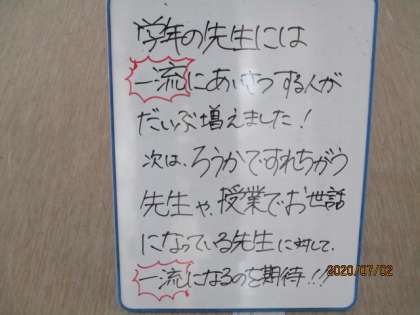 学年の先生には
一流にあいさつする人が
だいぶ増えました！
次は、ろうかですれちがう
先生や、授業でお世話
になっている先生に対して、
一流になるのを期待!!!
2020/07/02